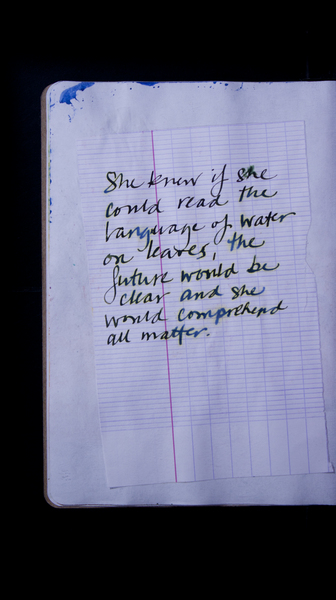 She knew if she
could read the
language of water
on leaves, the
future would be
clear and she
would comprehend
all matter.